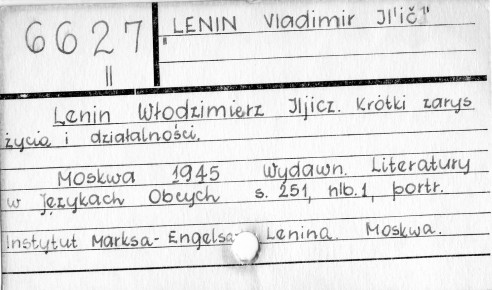 6627
II
"LENIN Vladimir Il'ič"
Lenin Włodzimierz Iljicz. Krótki zarys
życia i działalności.
Moskwa 1945 Wydawn. Literatury
w Językach Obcych s. 251, nlb. 1, portr.
Instytut Marksa-Engelsa-Lenina. Moskwa.